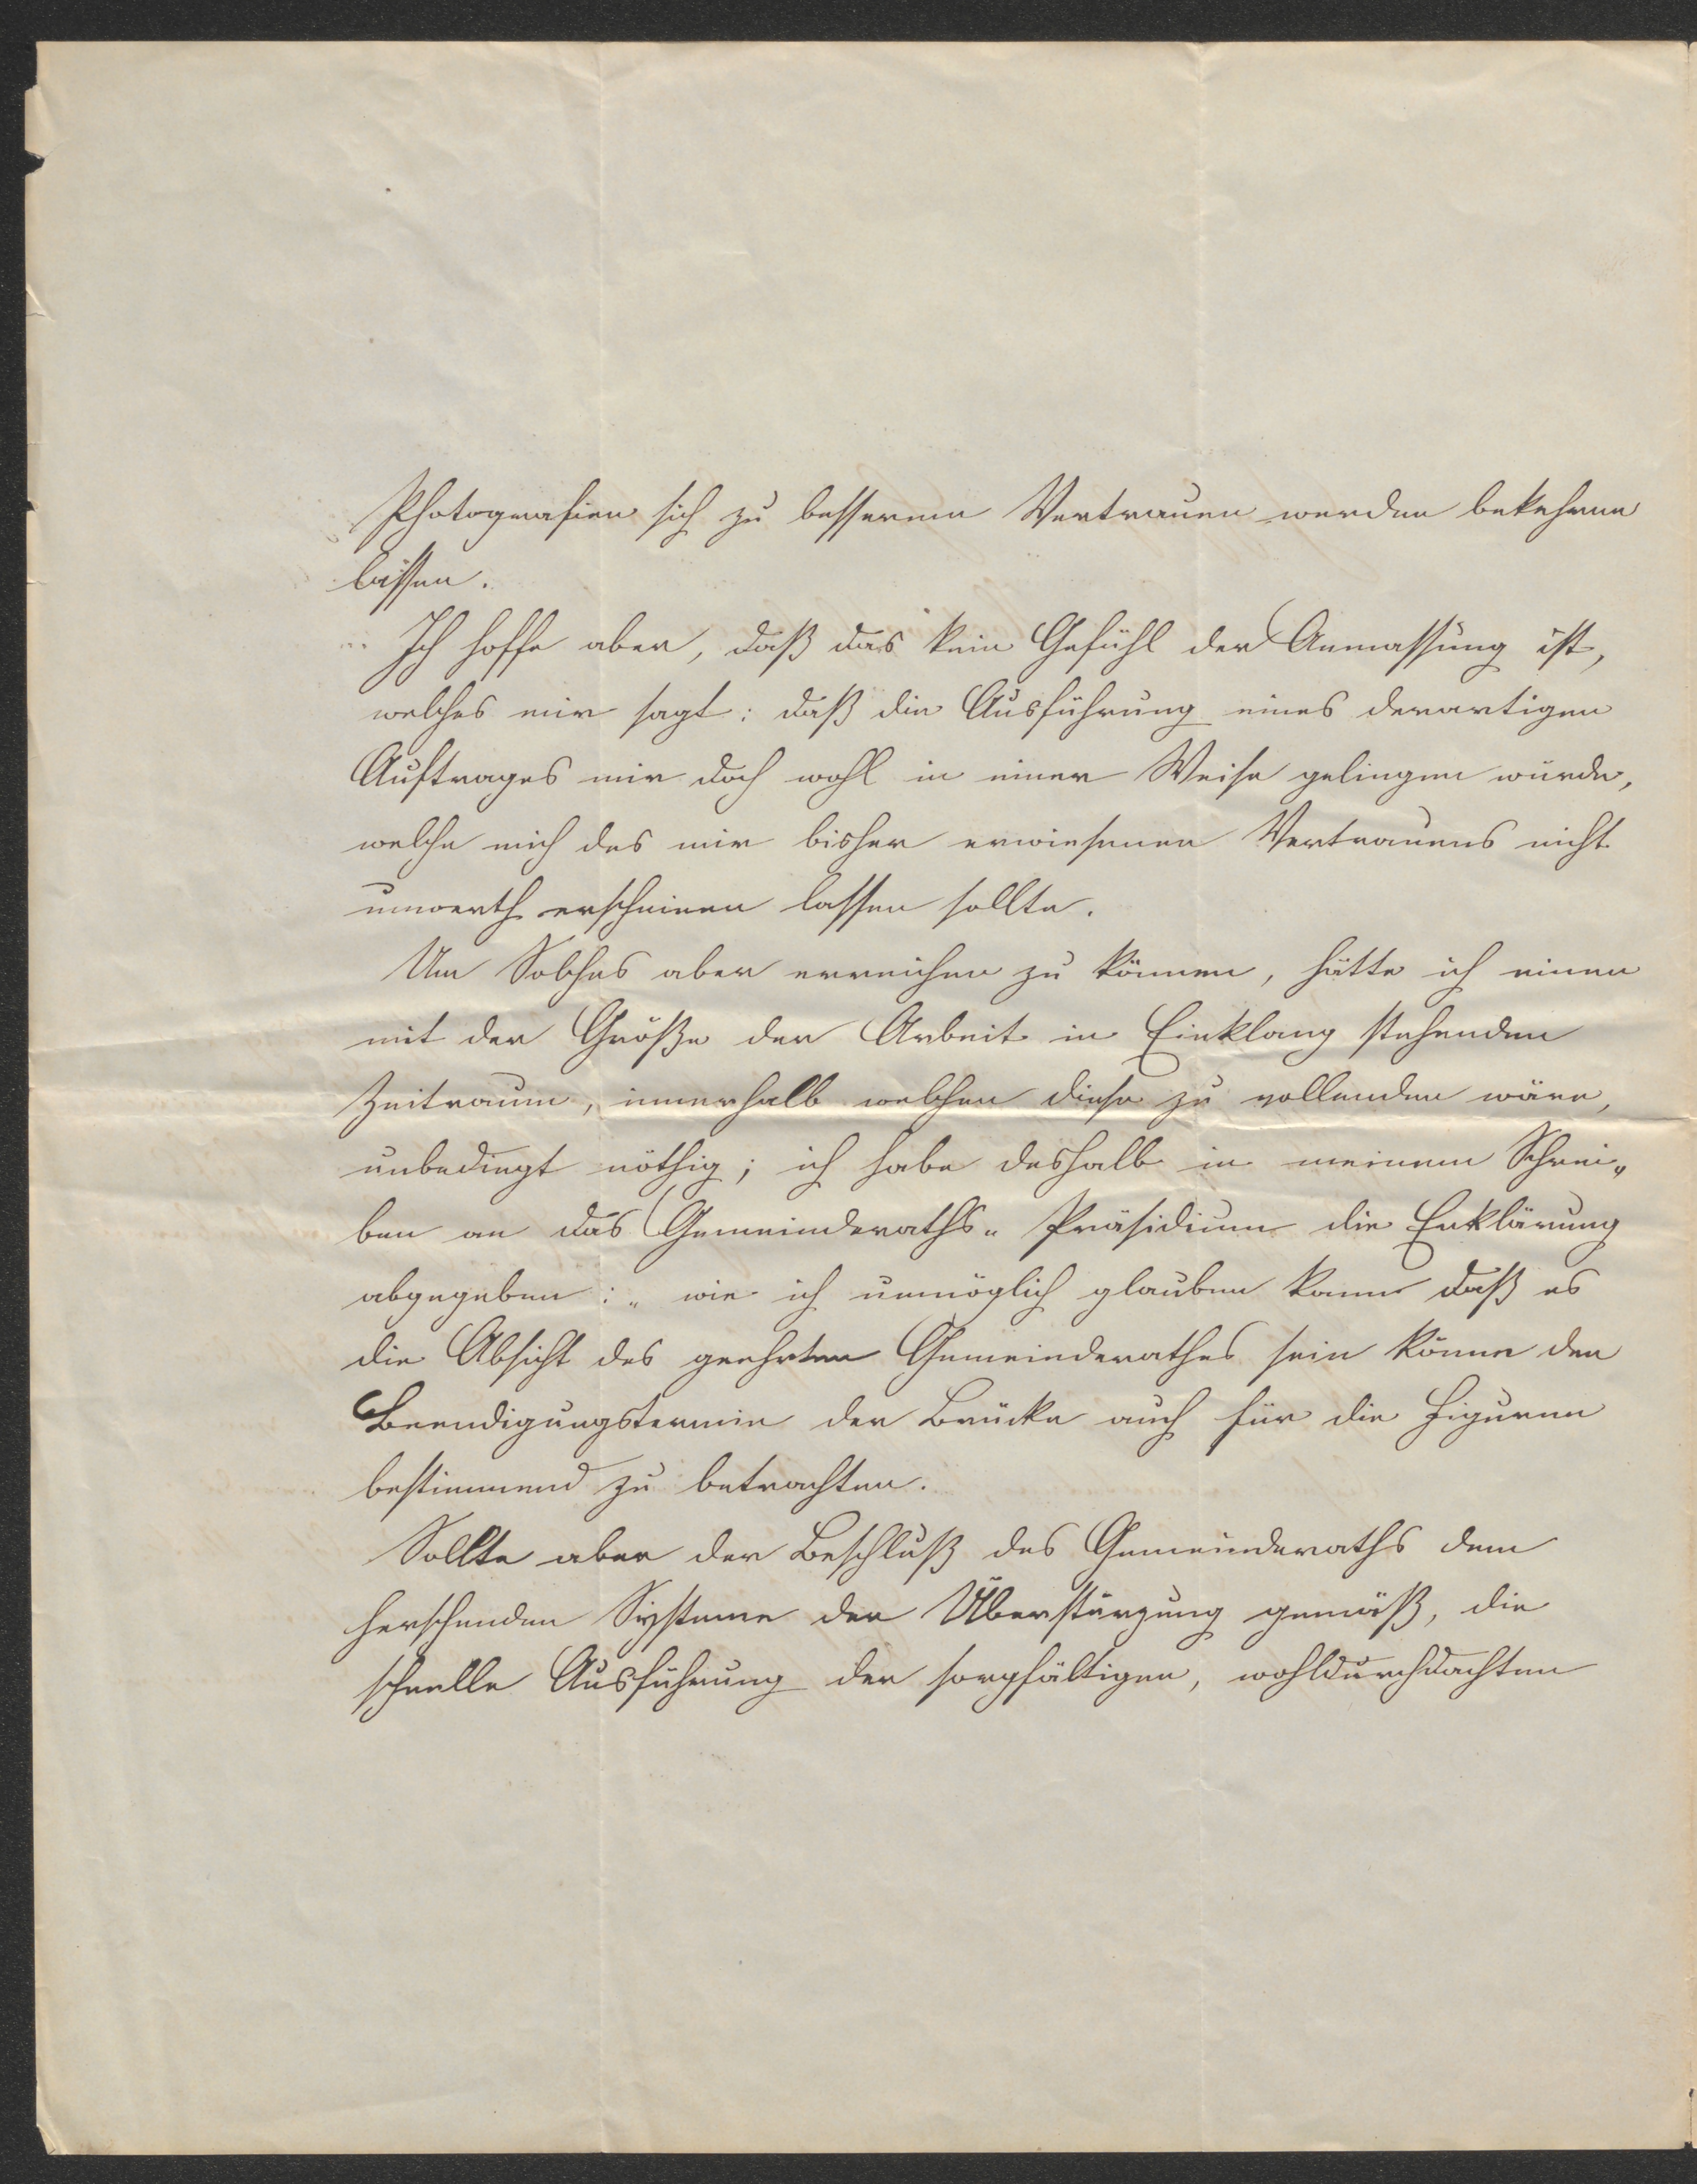 Photografien sich zu besserem Vertrauen werden bekehren
lassen.
Ich hoffe aber, daß das kein Gefühl der Anmassung ist,
welches mir sagt: daß die Ausführung eines derartigen
Auftrages mir doch wohl in einer Weise gelingen würde,
welche mich des mir bisher erwiesenen Vertrauens nicht
unwerth erscheinen lassen sollte.
Um Solches aber erreichen zu können, hätte ich einen
mit der Größe der Arbeit in Einklang stehenden
Zeitraum, innerhalb welchen diese zu vollenden wäre,
unbedingt nöthig; ich habe deshalb in meinem Schrei„
ben an das Gemeinderaths„ Präsidium die Erklärung
abgegeben: „ wie ich unmöglich glauben kann daß es
die Absicht des geehrten Gemeinderathes sein könne den
Beendigungstermin der Brücke auch für die Figuren
bestimmend zu betrachten.
Sollte aber der Beschluß des Gemeinderaths dem
herschenden Systeme der Überstürzung gemäß, die
schnelle Ausführung der sorgfältigen, wohldurchdachten